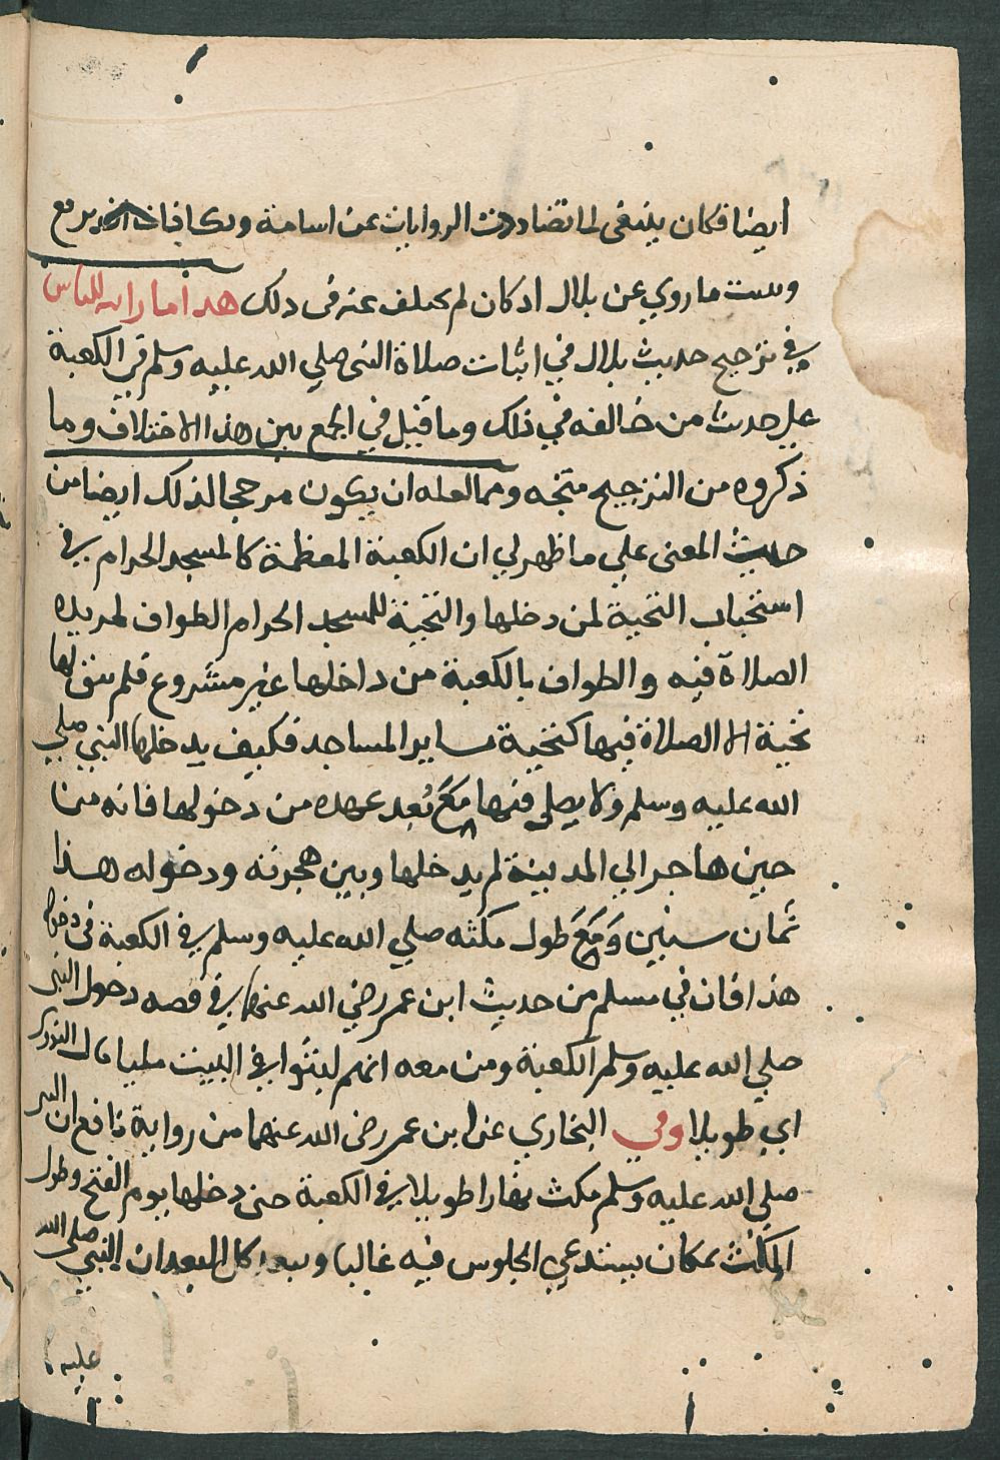 ايضا فكان ينبغى لما تضاددت الروايات عن اسامة وتكافات ان يرتفع
وثبت ما روي عن بلال اذ كان لم يختلف عنه فى ذلك هذا ما رايته للناس
في ترجيح حديث بلال في اثبات صلاة النبى صلي الله عليه وسلم في الكعبة
علي حديث من خالفه في ذلك وما قيل في الجمع بين هذا الاختلاف وما
ذكروه من الترجيح متجه ومما لعله ان يكون مرجحا لذلك ايضا من
حيث المعنى علي ما ظهر لي ان الكعبة المعظمة كالمسجد الحرام في
استحباب التحية لمن دخلها والتحية للمسجد الحرام الطواف لمريده
الصلاة فيه والطواف بالكعبة من داخلها غير مشروع فلم يبق لها
تحية الا الصلاة فيها كتحية ساير المساجد فكيف يدخلها النبي صلي
الله عليه وسلم ولا يصلي فيها مع بُعد عهده من دخولها فانه من
حين هاجر الي المدينة لم يدخلها وبين هجرته ودخوله هذا
ثمان سنين وَمَعَ طول مكثه صلي الله عليه وسلم في الكعبة فى دخوله
هذا فان في مسلم من حديث ابن عمر رضي الله عنهما في قصه دخول النبى
صلي الله عليه وسلم الكعبة ومن معه انهم لبثوا في البيت مليا قال النووى
اي طويلا وفي البخاري عن ابن عمر رضى الله عنهما من رواية نافع ان النبى
صلى الله عليه وسلم مكث نهارا طويلا في الكعبة حين دخلها يوم الفتح وطول
المكث بمكان يستدعي الجلوس فيه غالبا ويبعد كل البعد ان النبي صلى الله
عليه